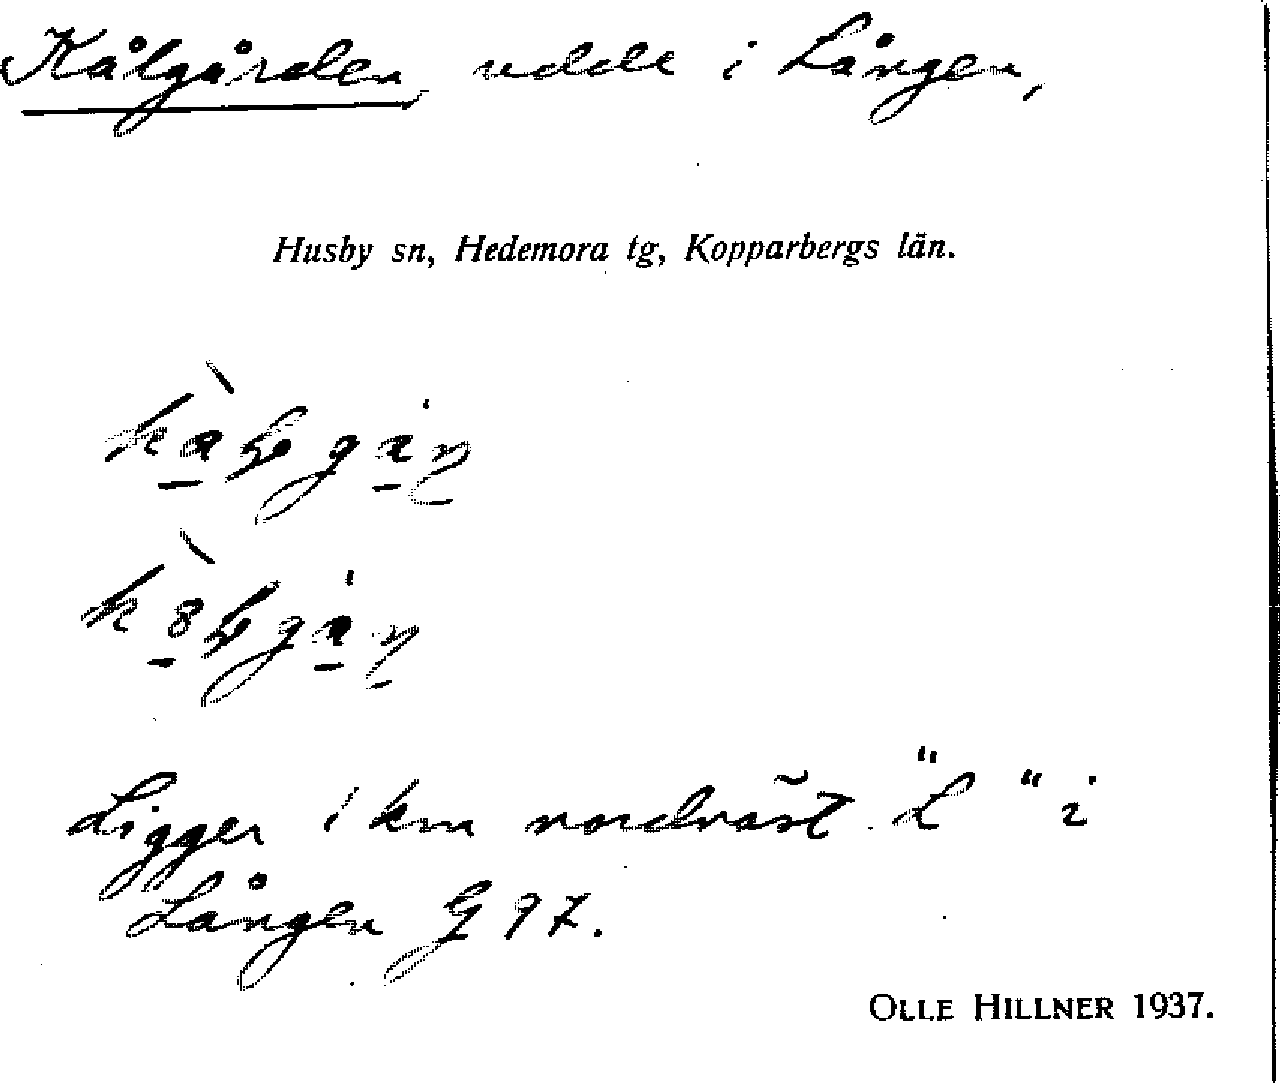 Kålgården, udde i Lången,
Husby sn, Hedemora tg, Kopparbergs län.
Ligger 1 km nordväst "L" i
Lången G 97.
OLLE HILLNER 1937.